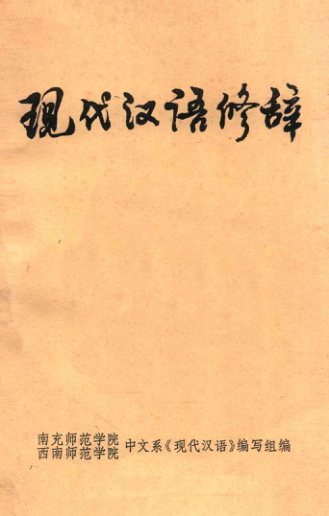 现代汉语修辞
南充师范学院
西南师范学院
中文系《现代汉语》编写组编